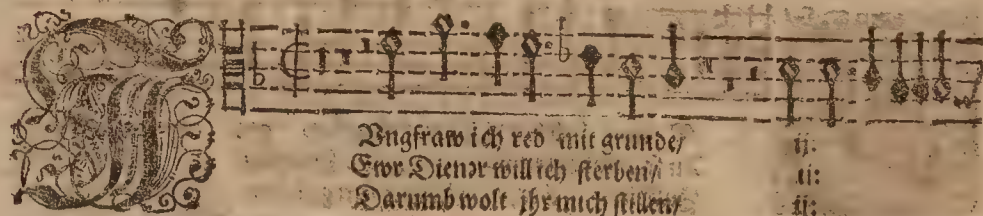 J
Vngfraw ich red mit grunde/ ij:
Ewr Diener will ich sterben/ ij:
Darumb wolt jhr mich stillen/ ij: